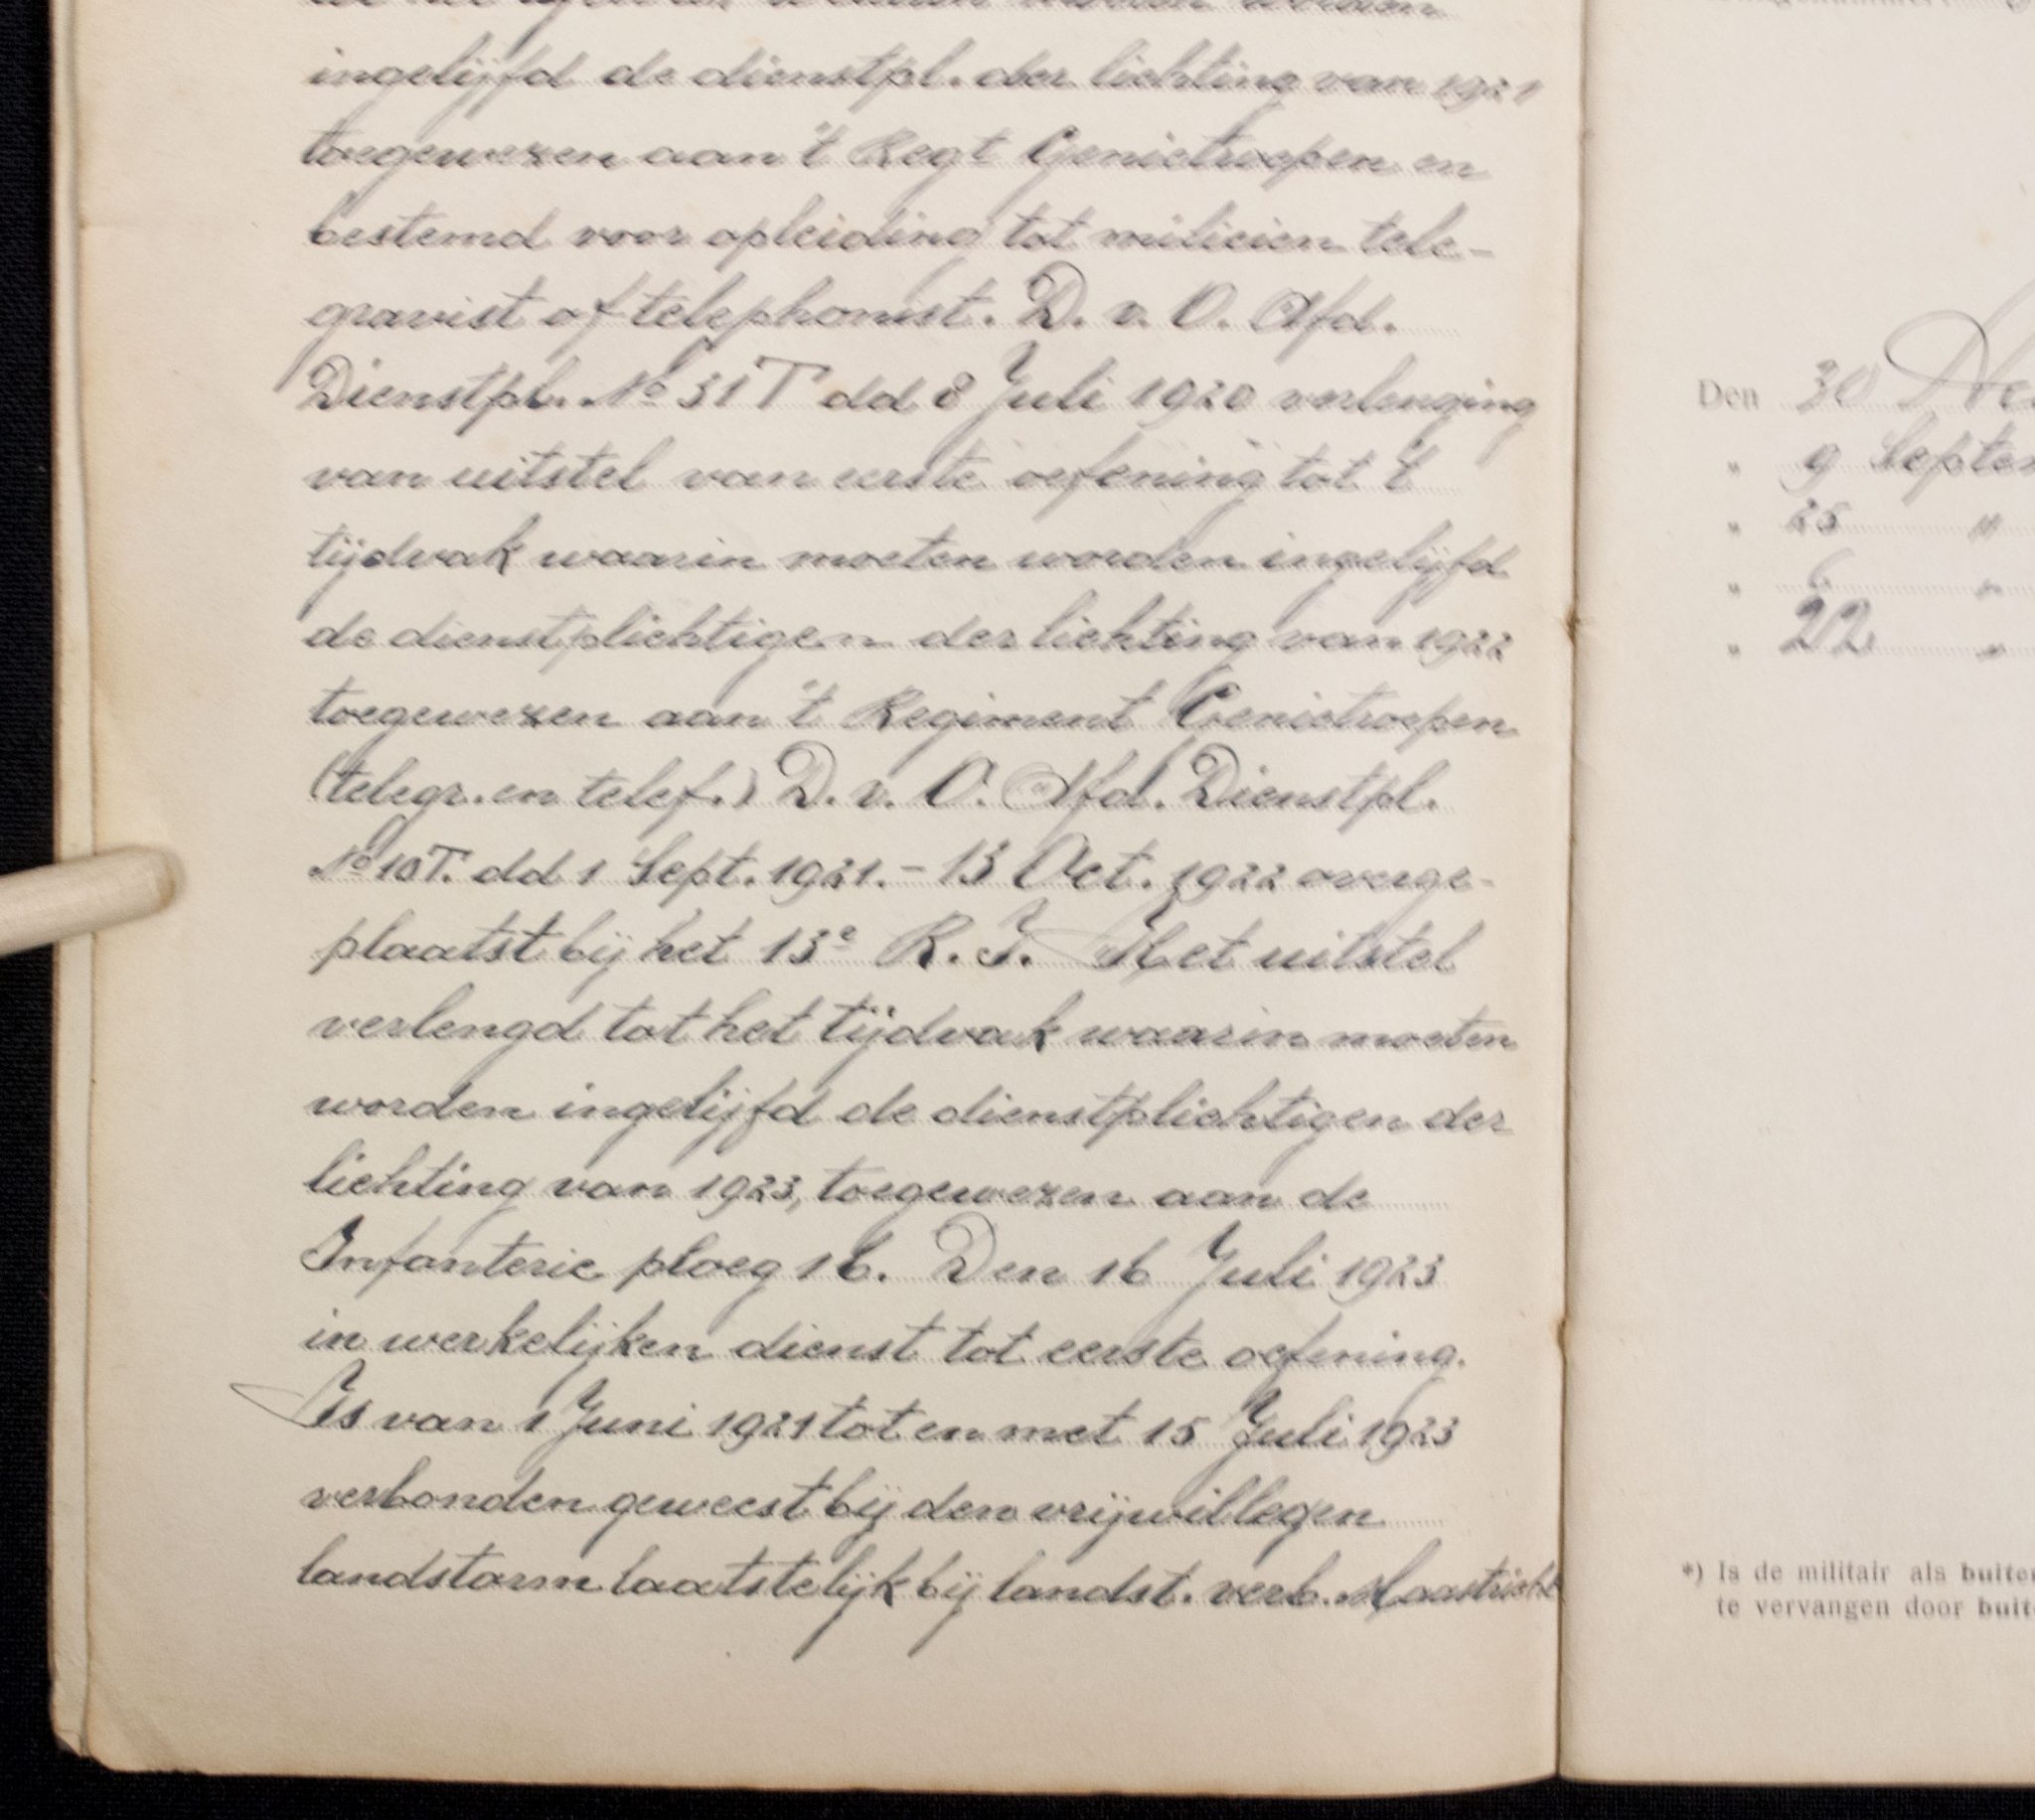 ingelijfd de dienstpl. der lichting van 1921
toegewezen aan 't Regt Genietroepen en
bestemd voor opleiding tot milicien tele-
gravist of telephonist. D. v. O. Afd.
Dienstpl. No 31 T dd 8 Juli 1920 verlenging
van uitstel van eerste oefening tot 't
tijdvak waarin moeten worden ingelijfd
de dienstplichtigen der lichting van 1922
toegewezen aan 't Regiment Genietroepen
(telegr. en telef.) D. v. O. Afd. Dienstpl.
No 10T. dd 1 Sept. 1921. - 13 Oct. 1922 overge-
plaatst bij het 13e R. I. Het uitstel
verlengd tot het tijdvak waarin moeten
worden ingelijfd de dienstplichtigen der
lichting van 1923, toegewezen aan de
Infanterie ploeg 1b. Den 16 Juli 1923
in werkelijken dienst tot eerste oefening.
Is van 1 Juni 1921 tot en met 15 Juli 1923
verbonden geweest bij den vrijwillegen
landstorm laatstelijk bij landst. verb. Maastricht
Den 30
" 9 Septem
" 25 "
" 6 "
" 22 "
*) Is de militair als buiten
te vervangen door buit